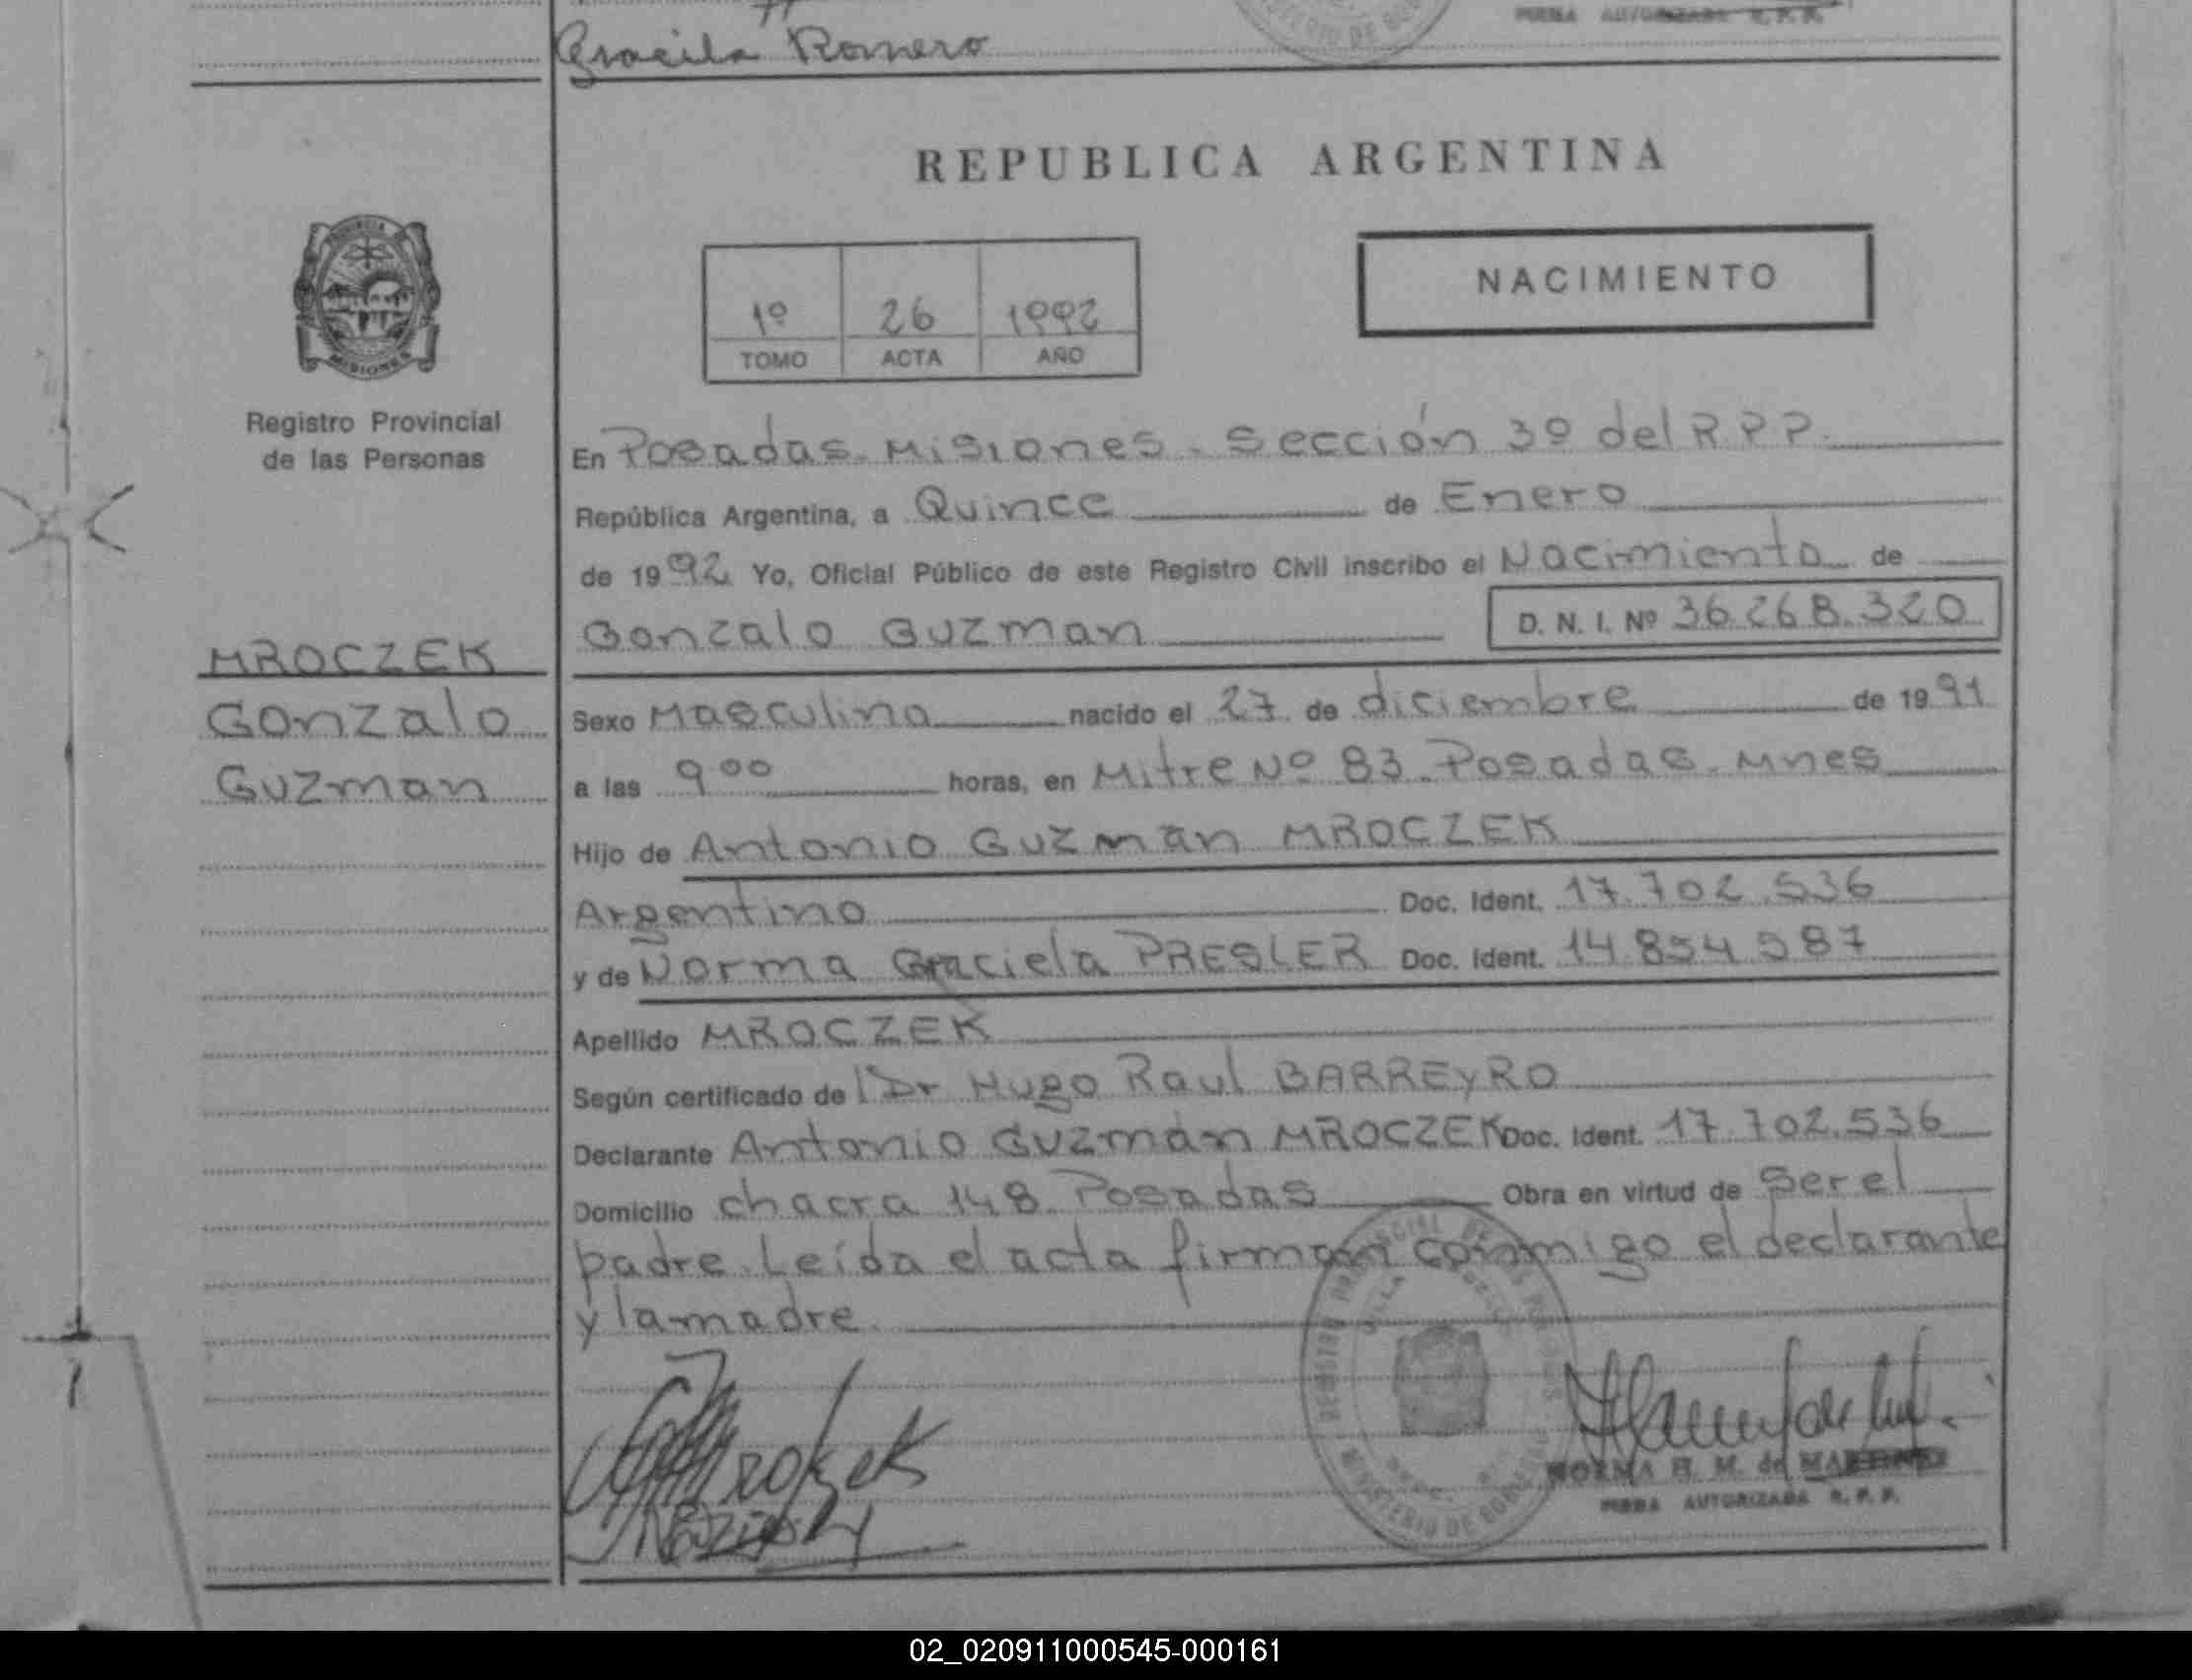 Graciela Romero
FIRMA AUTORIZADA R. P. P.
REPUBLICA ARGENTINA
NACIMIENTO
1º 26 1992
TOMO ACTA AÑO
PROVINCIA
MISIONES
Registro Provincial
de las Personas
En Posadas. Misiones. Sección 3º del R.P.P.
República Argentina, a Quince de Enero
de 1992 Yo, Oficial Público de este Registro Civil inscribo el Nacimiento de
Gonzalo Guzman D. N. I. Nº 36.268.320
MROCZEK
Gonzalo
Guzman
Sexo Masculino nacido el 27 de diciembre de 1991
a las 9 00 horas, en Mitre Nº 83. Posadas. Mnes
Hijo de Antonio Guzmán MROCZEK
Argentino Doc. Ident. 17.702.536
y de Norma Graciela PRESLER Doc. Ident. 14.854.587
Apellido MROCZEK
Según certificado de Dr Hugo Raul BARREYRO
Declarante Antonio Guzmán MROCZEK Doc. Ident. 17.702.536
Domicilio chacra 148. Posadas Obra en virtud de ser el
padre. Leída el acta firman conmigo el declarante
y la madre
REGISTRO PROVINCIAL DE LAS PERSONAS
MINISTERIO DE GOBIERNO
NORMA H. M. de
FIRMA AUTORIZADA R. P. P.
02_020911000545-000161